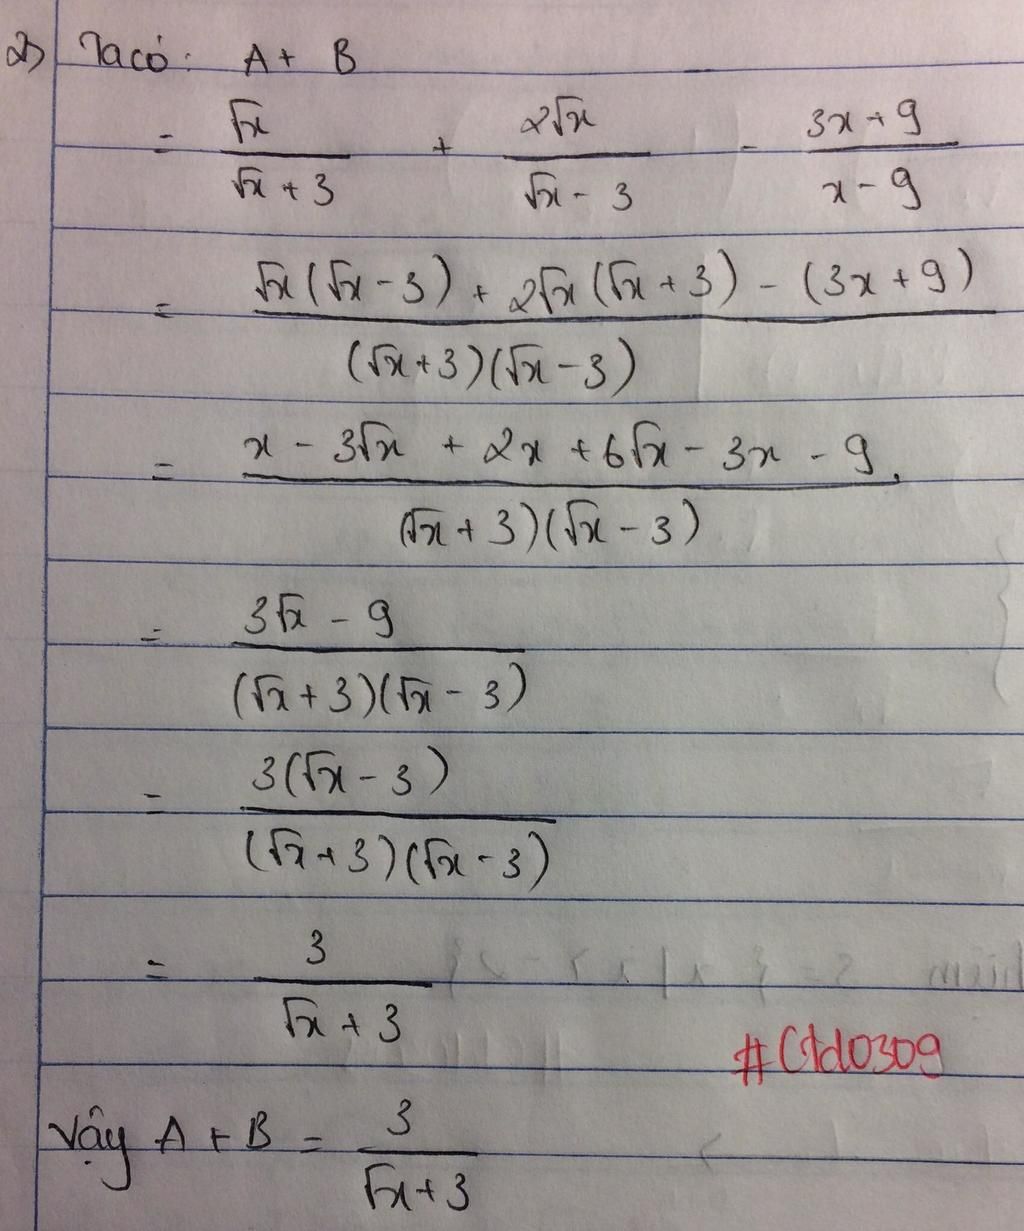 2) Ta có: A + B
= √x / (√x + 3) + 2√x / (√x - 3) - (3x + 9) / (x - 9)
= (√x(√x - 3) + 2√x(√x + 3) - (3x + 9)) / ((√x + 3)(√x - 3))
= (x - 3√x + 2x + 6√x - 3x - 9) / ((√x + 3)(√x - 3))
= (3√x - 9) / ((√x + 3)(√x - 3))
= 3(√x - 3) / ((√x + 3)(√x - 3))
= 3 / (√x + 3)
#Ctd0309
Vậy A + B = 3 / (√x + 3)